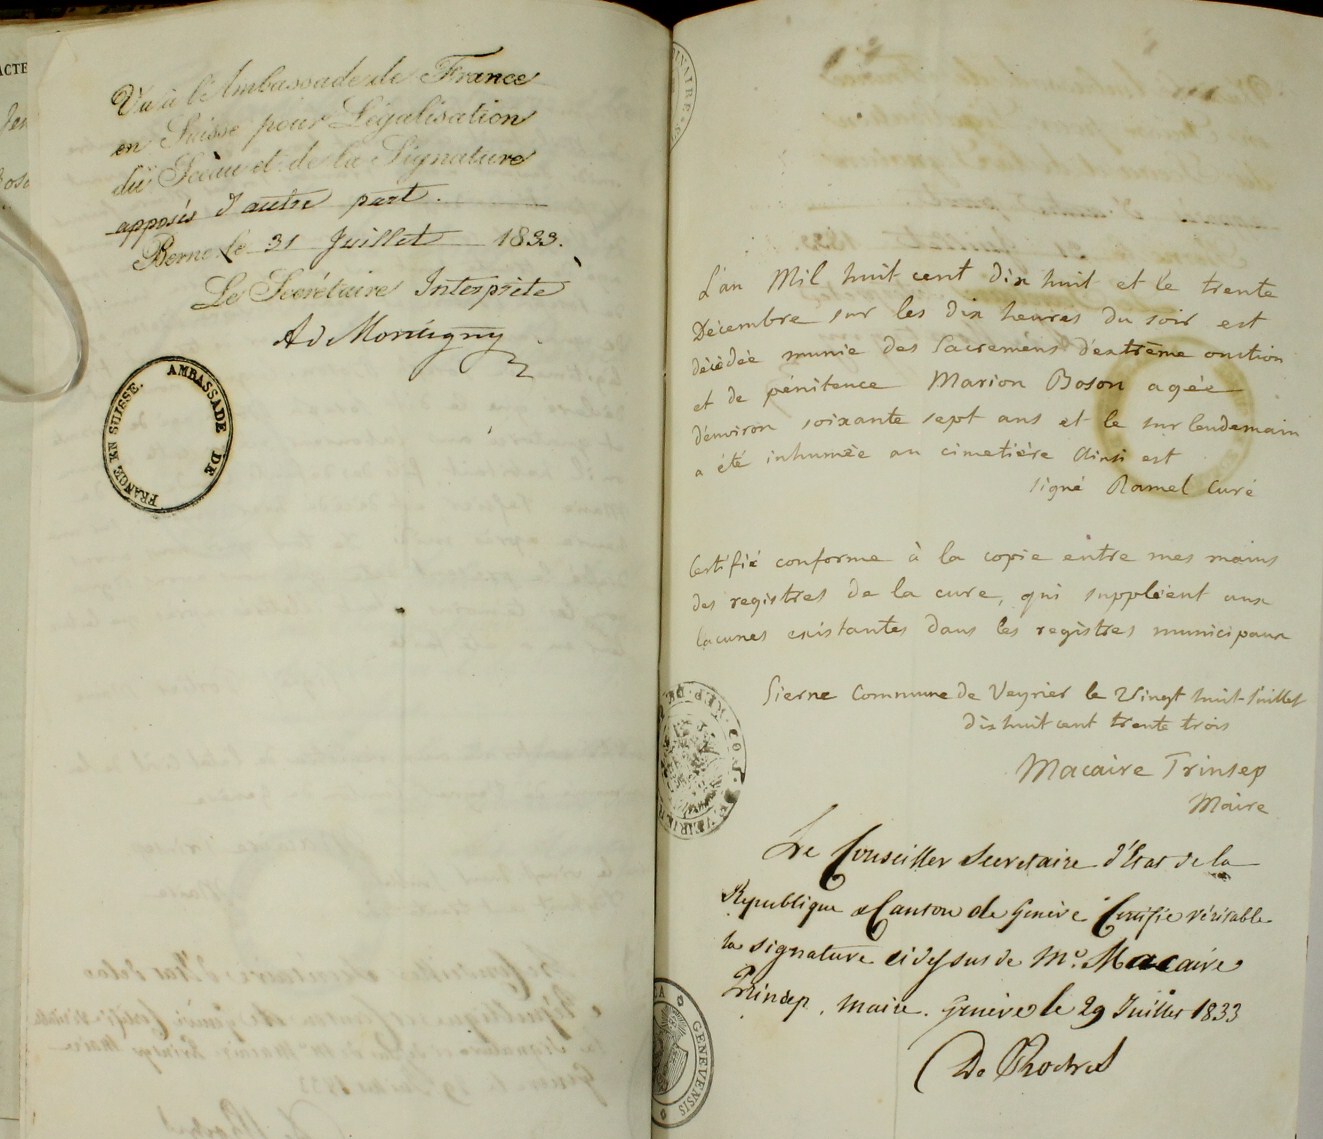 ACTE
Vu à l'Ambassade de France
en Suisse pour Légalisation
du Scèau et de la Signature
apposés d'autre part.
Berne, le 31 Juillet 1833.
Le Secrétaire Interprète
Ad Montigny
AMBASSADE DE
FRANCE EN SUISSE.
L'an Mil huit cent dix huit et le trente
Décembre sur les dix heures du soir est
décédée munie des Sacremens d'extrême onction
et de pénitence Marion Boson agée
d'environ soixante sept ans et le surlendemain
a été inhumée au cimetière Ainsi est
signé Ramel Curé
Certifié conforme à la copie entre mes mains
des registres de la cure, qui suppléent aux
lacunes existantes dans les registres municipaux
Sierne Commune de Veyrier le Vingt huit Juillet
dix huit cent trente trois
Macaire Prinsep
Maire
Le Conseiller Secretaire d'Etat de la
Republique & Canton de Genève Certifie véritable
la signature ci dessus de Mr. Macaire
Prinsep, Maire. Genève le 29 Juillet 1833
De Roches
GENEVENSIS